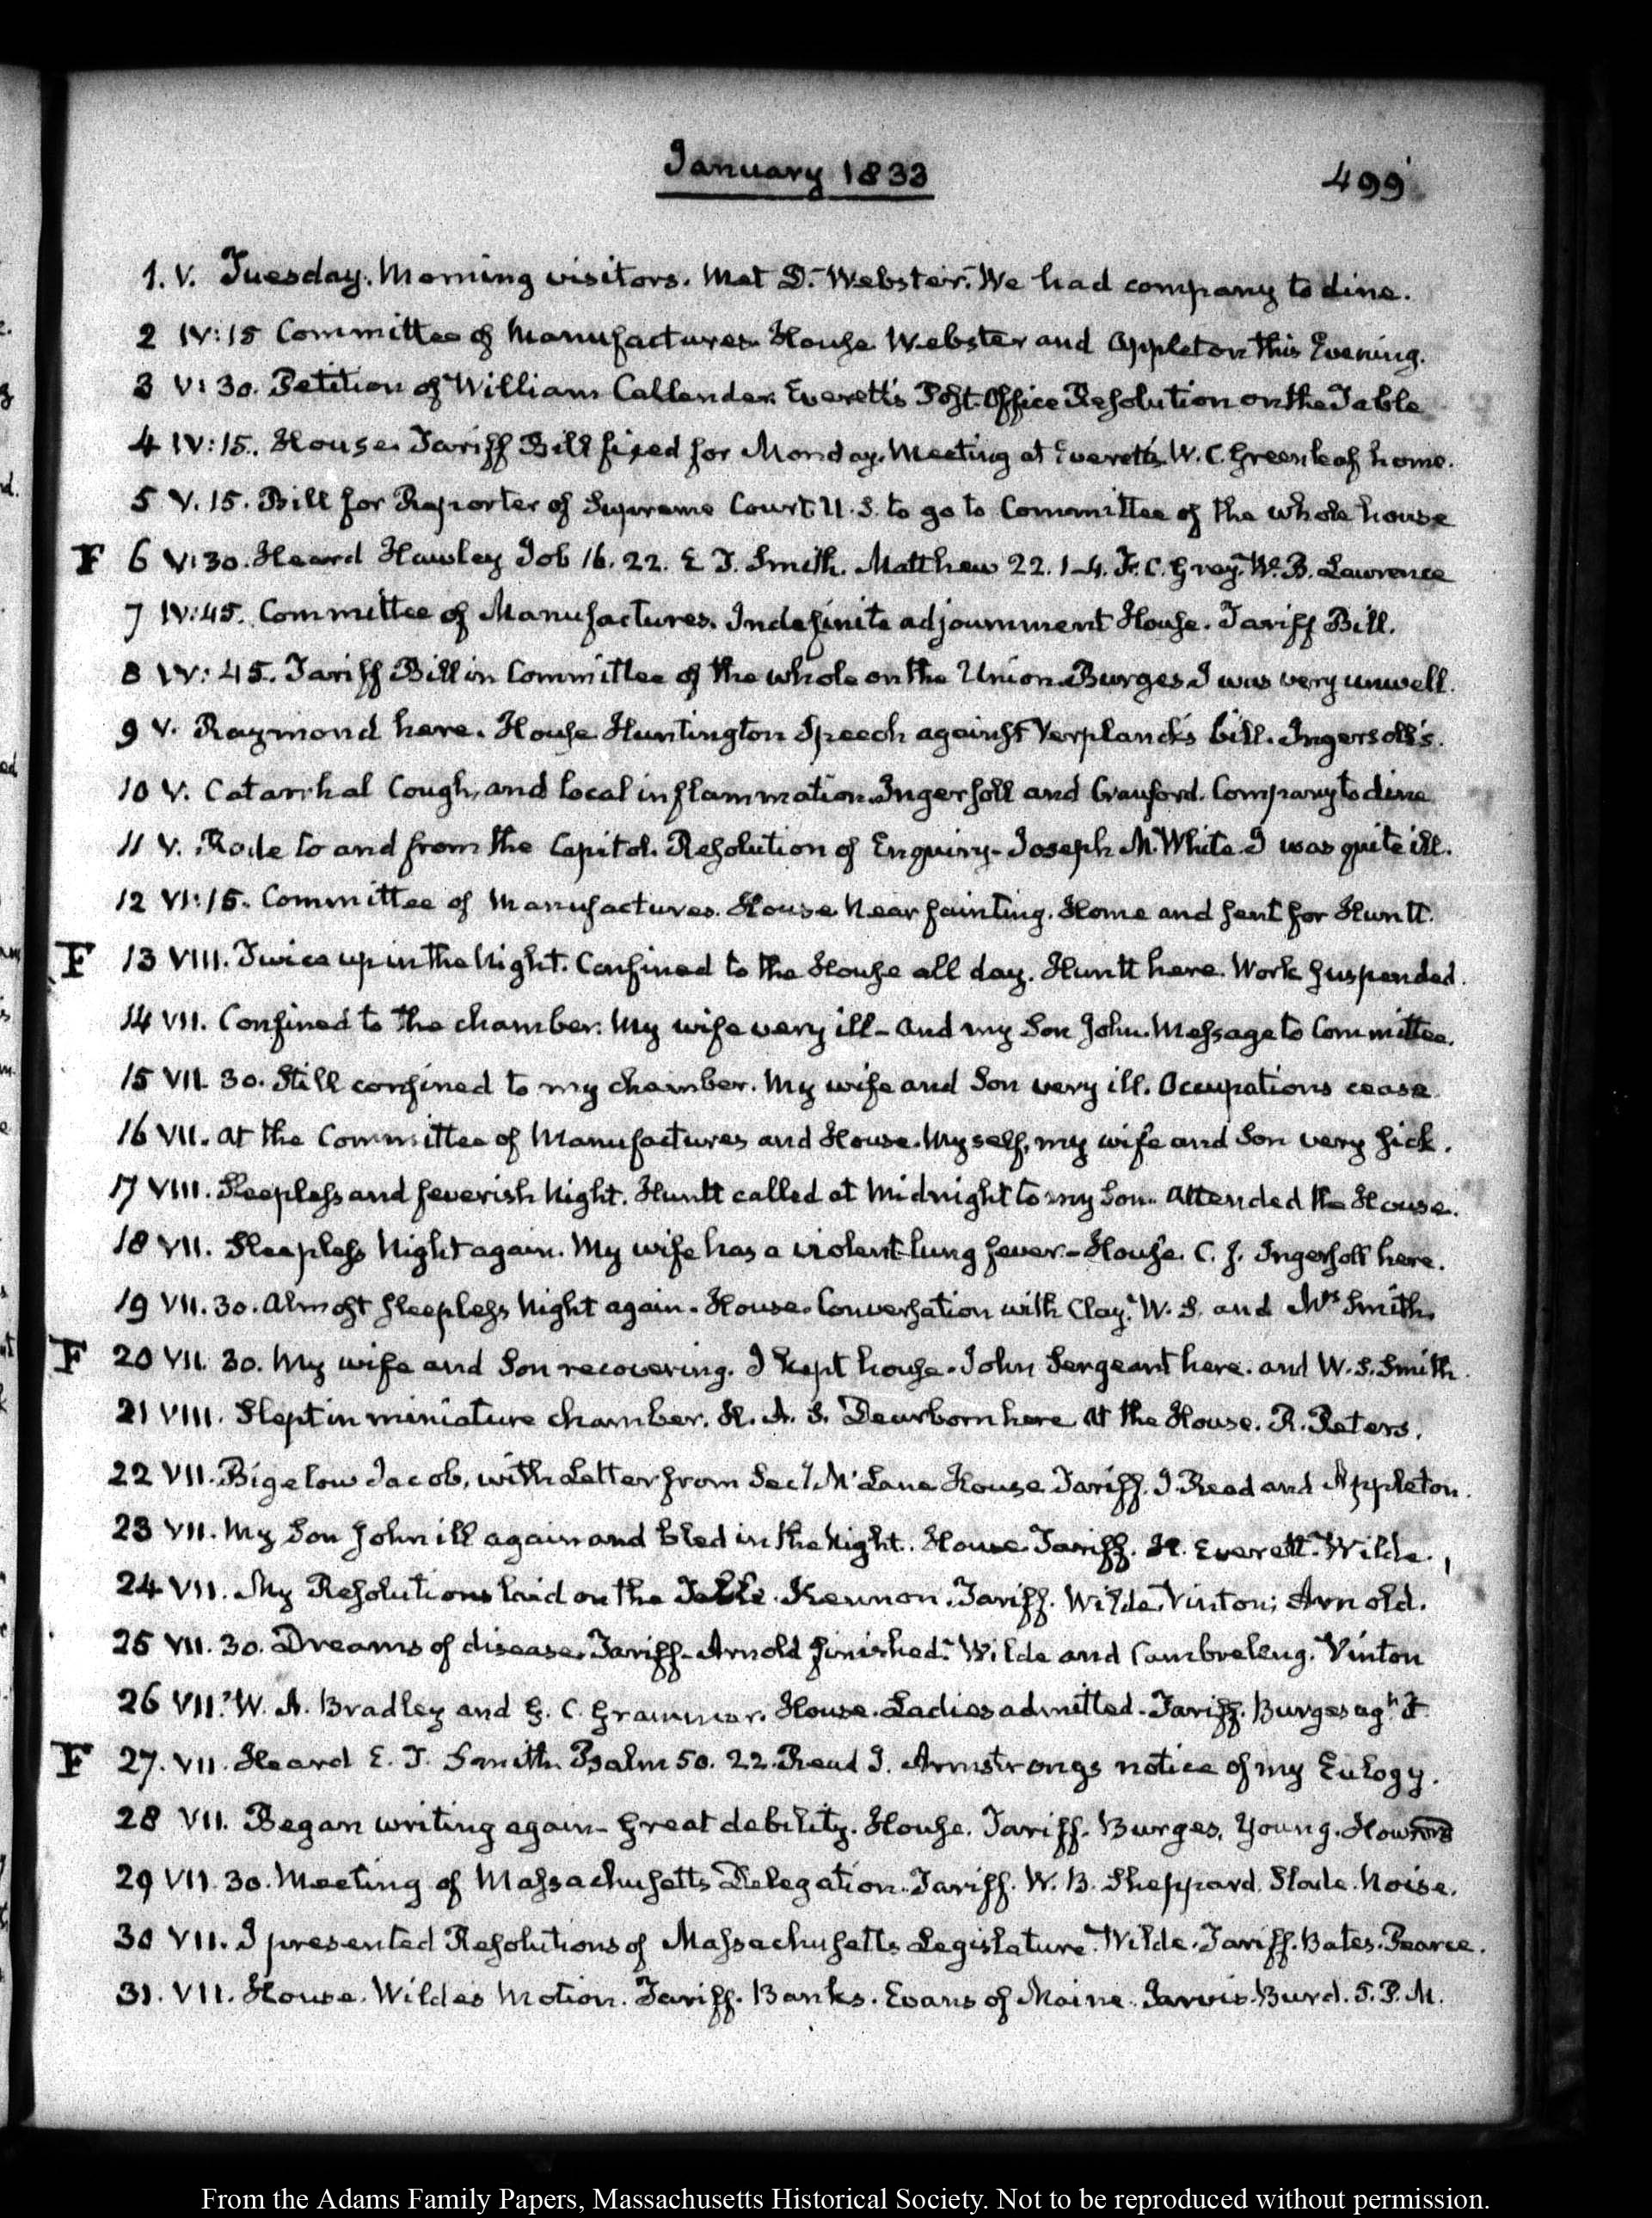 January 1833
499
1. V. Tuesday. Morning visitors. Met D. Webster. We had company to dine.
2 IV:15 Committee of Manufactures. House. Webster and Appleton this Evening.
3 V:30. Petition of William Callender. Everett's Post-Office Resolution on the Table
4 IV:15. House. Tariff Bill fixed for Monday. Meeting at Everett's. W. C. Greenleaf home.
5 V.15. Bill for Reporter of Supreme Court U.S. to go to Committee of the whole house
F 6 V:30. Heard Hawley Job 16. 22. E. T. Smith. Matthew 22. 1-4. F. C. Gray. W. B. Lawrence
7 IV:45. Committee of Manufactures. Indefinite adjournment House. Tariff Bill.
8 IV:45. Tariff Bill in Committee of the whole on the Union. Burges. I was very unwell.
9 V. Raymond here. House. Huntington Speech against Verplanck's bill. Ingersoll's.
10 V. Catarrhal Cough, and local inflammation. Ingersoll and Crauford. Company to dine
11 V. Rode to and from the Capitol. Resolution of Enquiry - Joseph M. White. I was quite ill.
12 VI:15. Committee of Manufactures. House. Near fainting. Home and sent for Huntt.
F 13 VIII. Twice up in the Night. Confined to the House all day. Huntt here. Work suspended.
14 VII. Confined to the chamber. My wife very ill - and my Son John. Message to Committee.
15 VII. 30. Still confined to my chamber. My wife and Son very ill. Occupations cease
16 VII. At the Committee of Manufactures and House. Myself, my wife and Son very sick.
17 VIII. Sleepless and feverish Night. Huntt called at Midnight to my Son. Attended the House.
18 VII. Sleepless Night again. My wife has a violent lung fever. - House. C. J. Ingersoll here.
19 VII. 30. Almost sleepless Night again. House. Conversation with Clay. W. S. and Mrs Smith.
F 20 VII. 30. My wife and Son recovering. I kept house. John Sergeant here. and W. S. Smith.
21 VIII. Slept in miniature chamber. H. A. S. Dearborn here. At the House. R. Peters.
22 VII. Bigelow Jacob, with Letter from Secy. McLane House Tariff. J. Reed and Appleton.
23 VII. My Son John ill again and bled in the Night. House Tariff. H. Everett. Wilde.
24 VII. My Resolutions laid on the Table. Kennon. Tariff. Wilde Vinton; Arnold.
25 VII. 30. Dreams of disease. Tariff - Arnold finished. Wilde and Cambreleng. Vinton
26 VII. W. A. Bradley and G. C. Grammer. House. Ladies admitted. Tariff. Burges agst it
F 27. VII. Heard E. T. Smith. Psalm 50. 22. Read J. Armstrongs notice of my Eulogy.
28 VII. Began writing again - great debility. House. Tariff. Burges, Young. Howard
29 VII 30. Meeting of Massachusetts Delegation. Tariff. W. B. Sheppard. Slade. Noise.
30 VII. I presented Resolutions of Massachusetts Legislature. Wilde. Tariff. Bates. Pearce.
31. VII. House. Wildes Motion. Tariff. Banks. Evans of Maine. Jarvis. Burd. T.P.M.
From the Adams Family Papers, Massachusetts Historical Society. Not to be reproduced without permission.